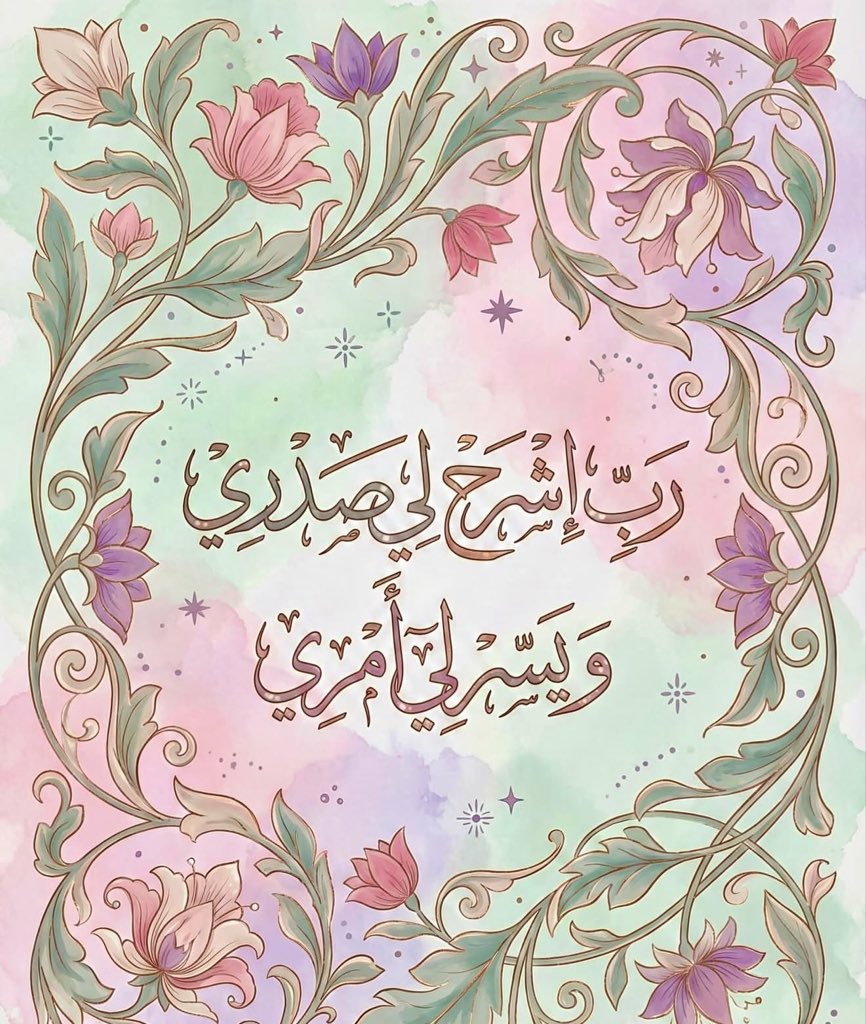 رَبِّ إِشْرَحْ لِي صَدْرِيْ
وَيَسِّرْ لِيٓ أَمْرِي